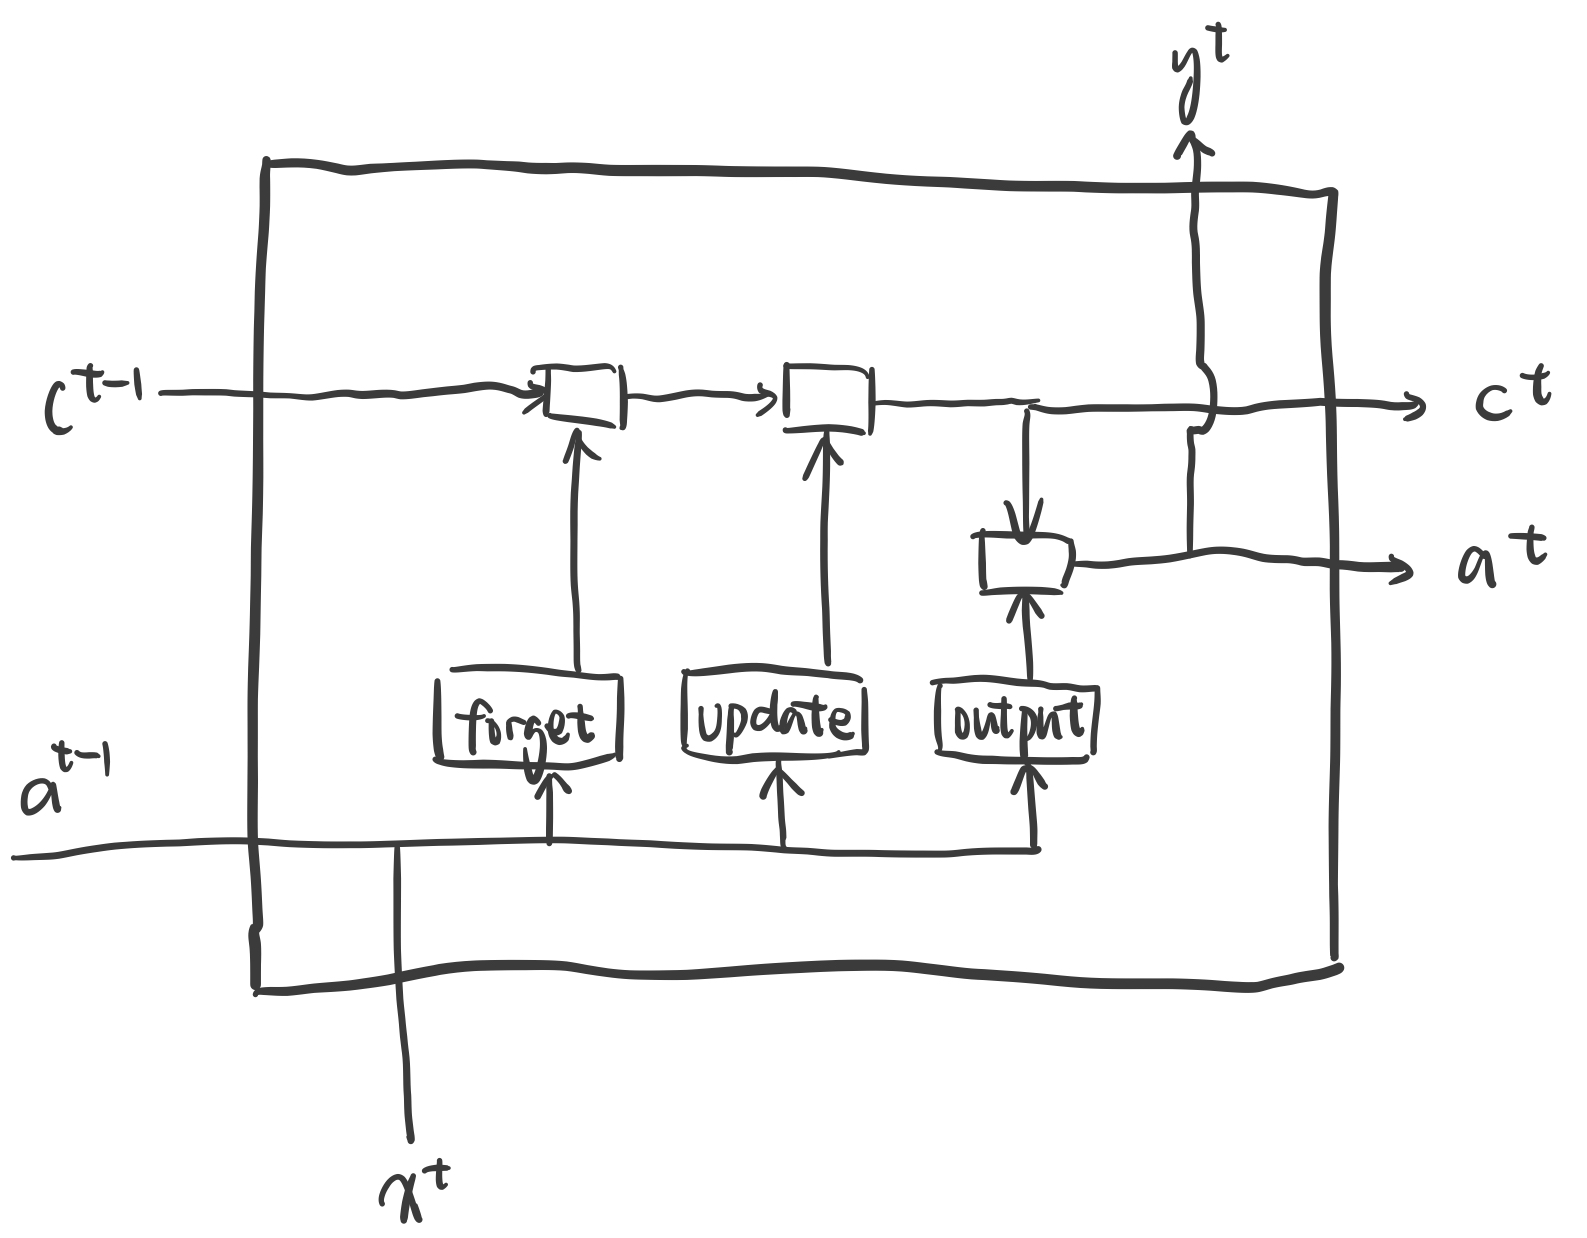 y^t
c^t-1
c^t
a^t
forget update output
a^t-1
x^t